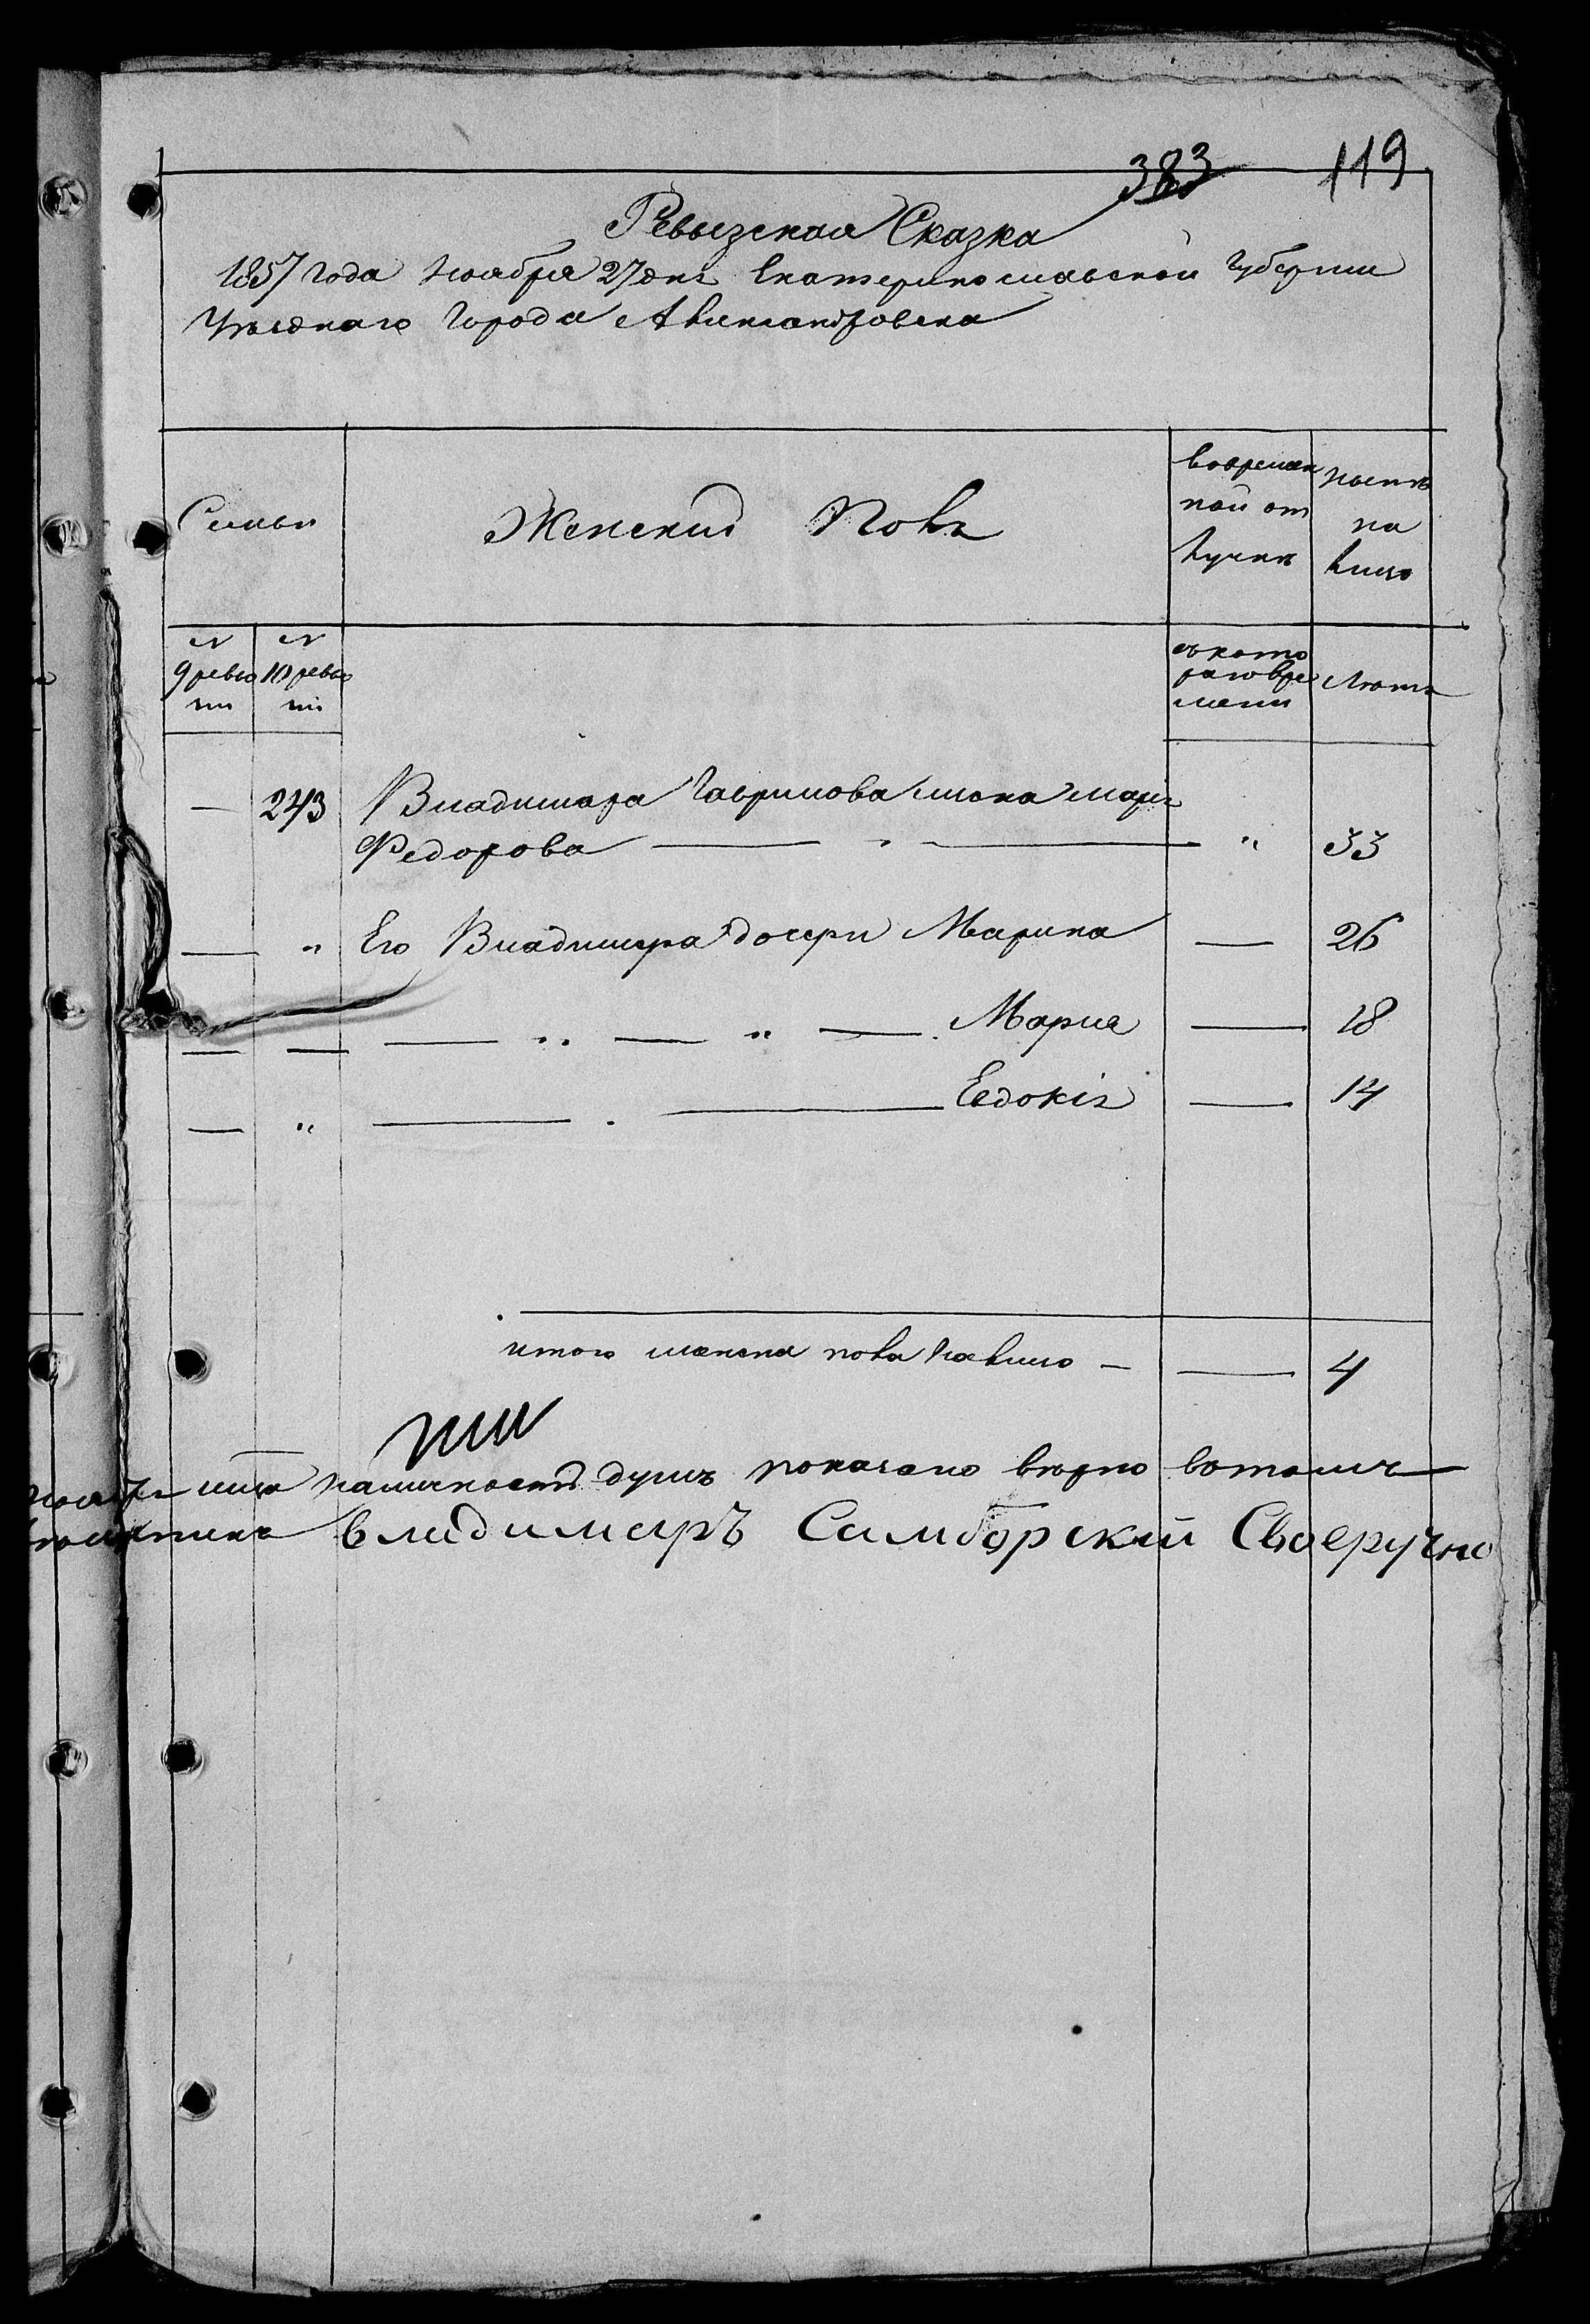 383 119
Ревызская Сказка
1857 года Ноября 27 дня Екатеринославской Губернии
Уѣзднаго Города Александровска
Семьи
Женский Полъ
вовремян
ной от
лучкѣ
ностѣ
на
лицо
N
9 ревы
зіи
N
10 ревы
зіи
съ кото
раго вре
мени
Лѣта
— 243 Владимера Гаврилова жена Марія
Федорова — " — " 33
— " Его Владимера дочери Марина — 26
— — — " — " — Мария — 18
— " — Евдокія — 14
итого женска пола налицо — — 4
наличность душъ показано вѣрно вотомъ
Владимеръ Самборский Своеручно